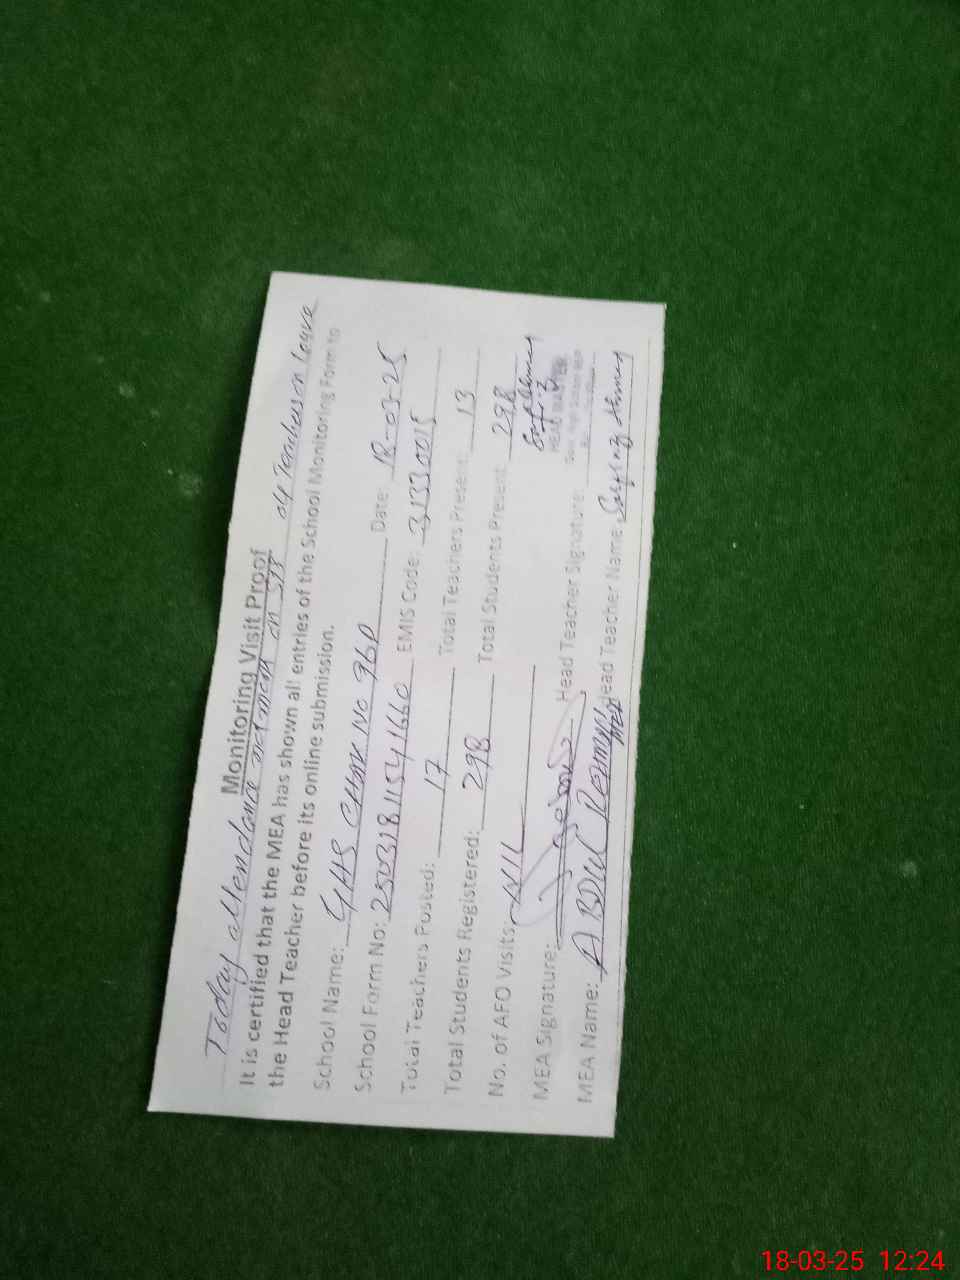 Monitoring Visit Proof
Today attendance not mark on SIS 04 Teachers on leave
It is certified that the MEA has shown all entries of the School Monitoring Form to
the Head Teacher before its online submission.
School Name: GHS CHAK NO 96P Date: 18-03-25
School Form No: 25031811541660 EMIS Code: 31330015
Total Teachers Posted: 17 Total Teachers Present: 13
Total Students Registered: 298 Total Students Present: 298
No. of AFO Visits: NIL
HEAD MASTER
MEA Signature: Head Teacher Signature:
MEA Name: ABDUL Head Teacher Name:
MEA
18-03-25 12:24